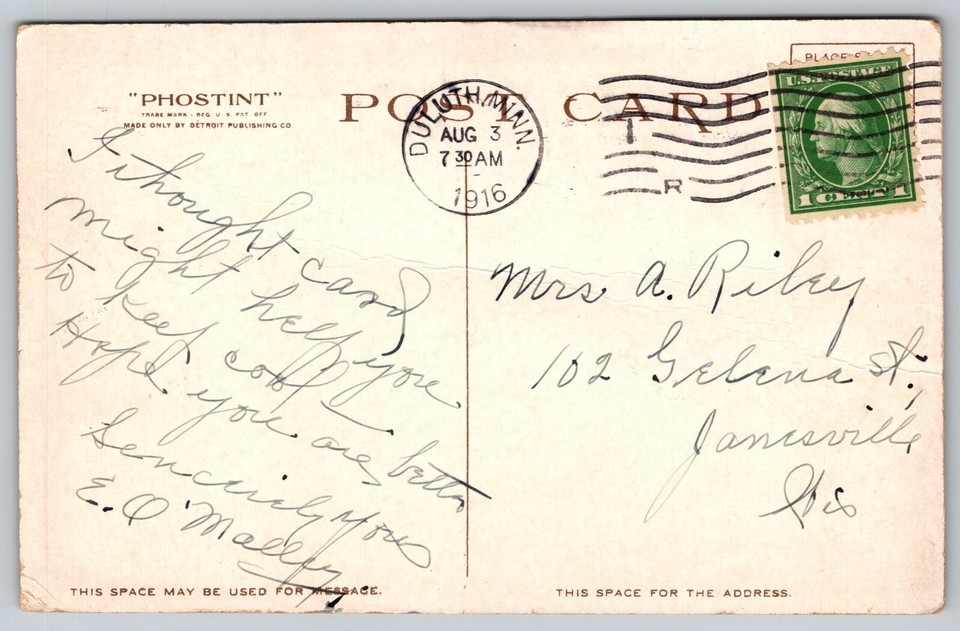 "PHOSTINT"
TRADE MARK - REG. U. S. PAT. OFF
MADE ONLY BY DETROIT PUBLISHING CO
POST CARD
DULUTH, MINN.
AUG 3
7 30 AM
1916
T
R
PLACE
U.S. POSTAGE
1 CENT 1
I thought card
might help you
to keep cool —
Hope you are better
Sencirily yours
E. O'Malley
Mrs A. Riley
102 Gelena St.
Janesville
Wis
THIS SPACE MAY BE USED FOR MESSAGE.
THIS SPACE FOR THE ADDRESS.